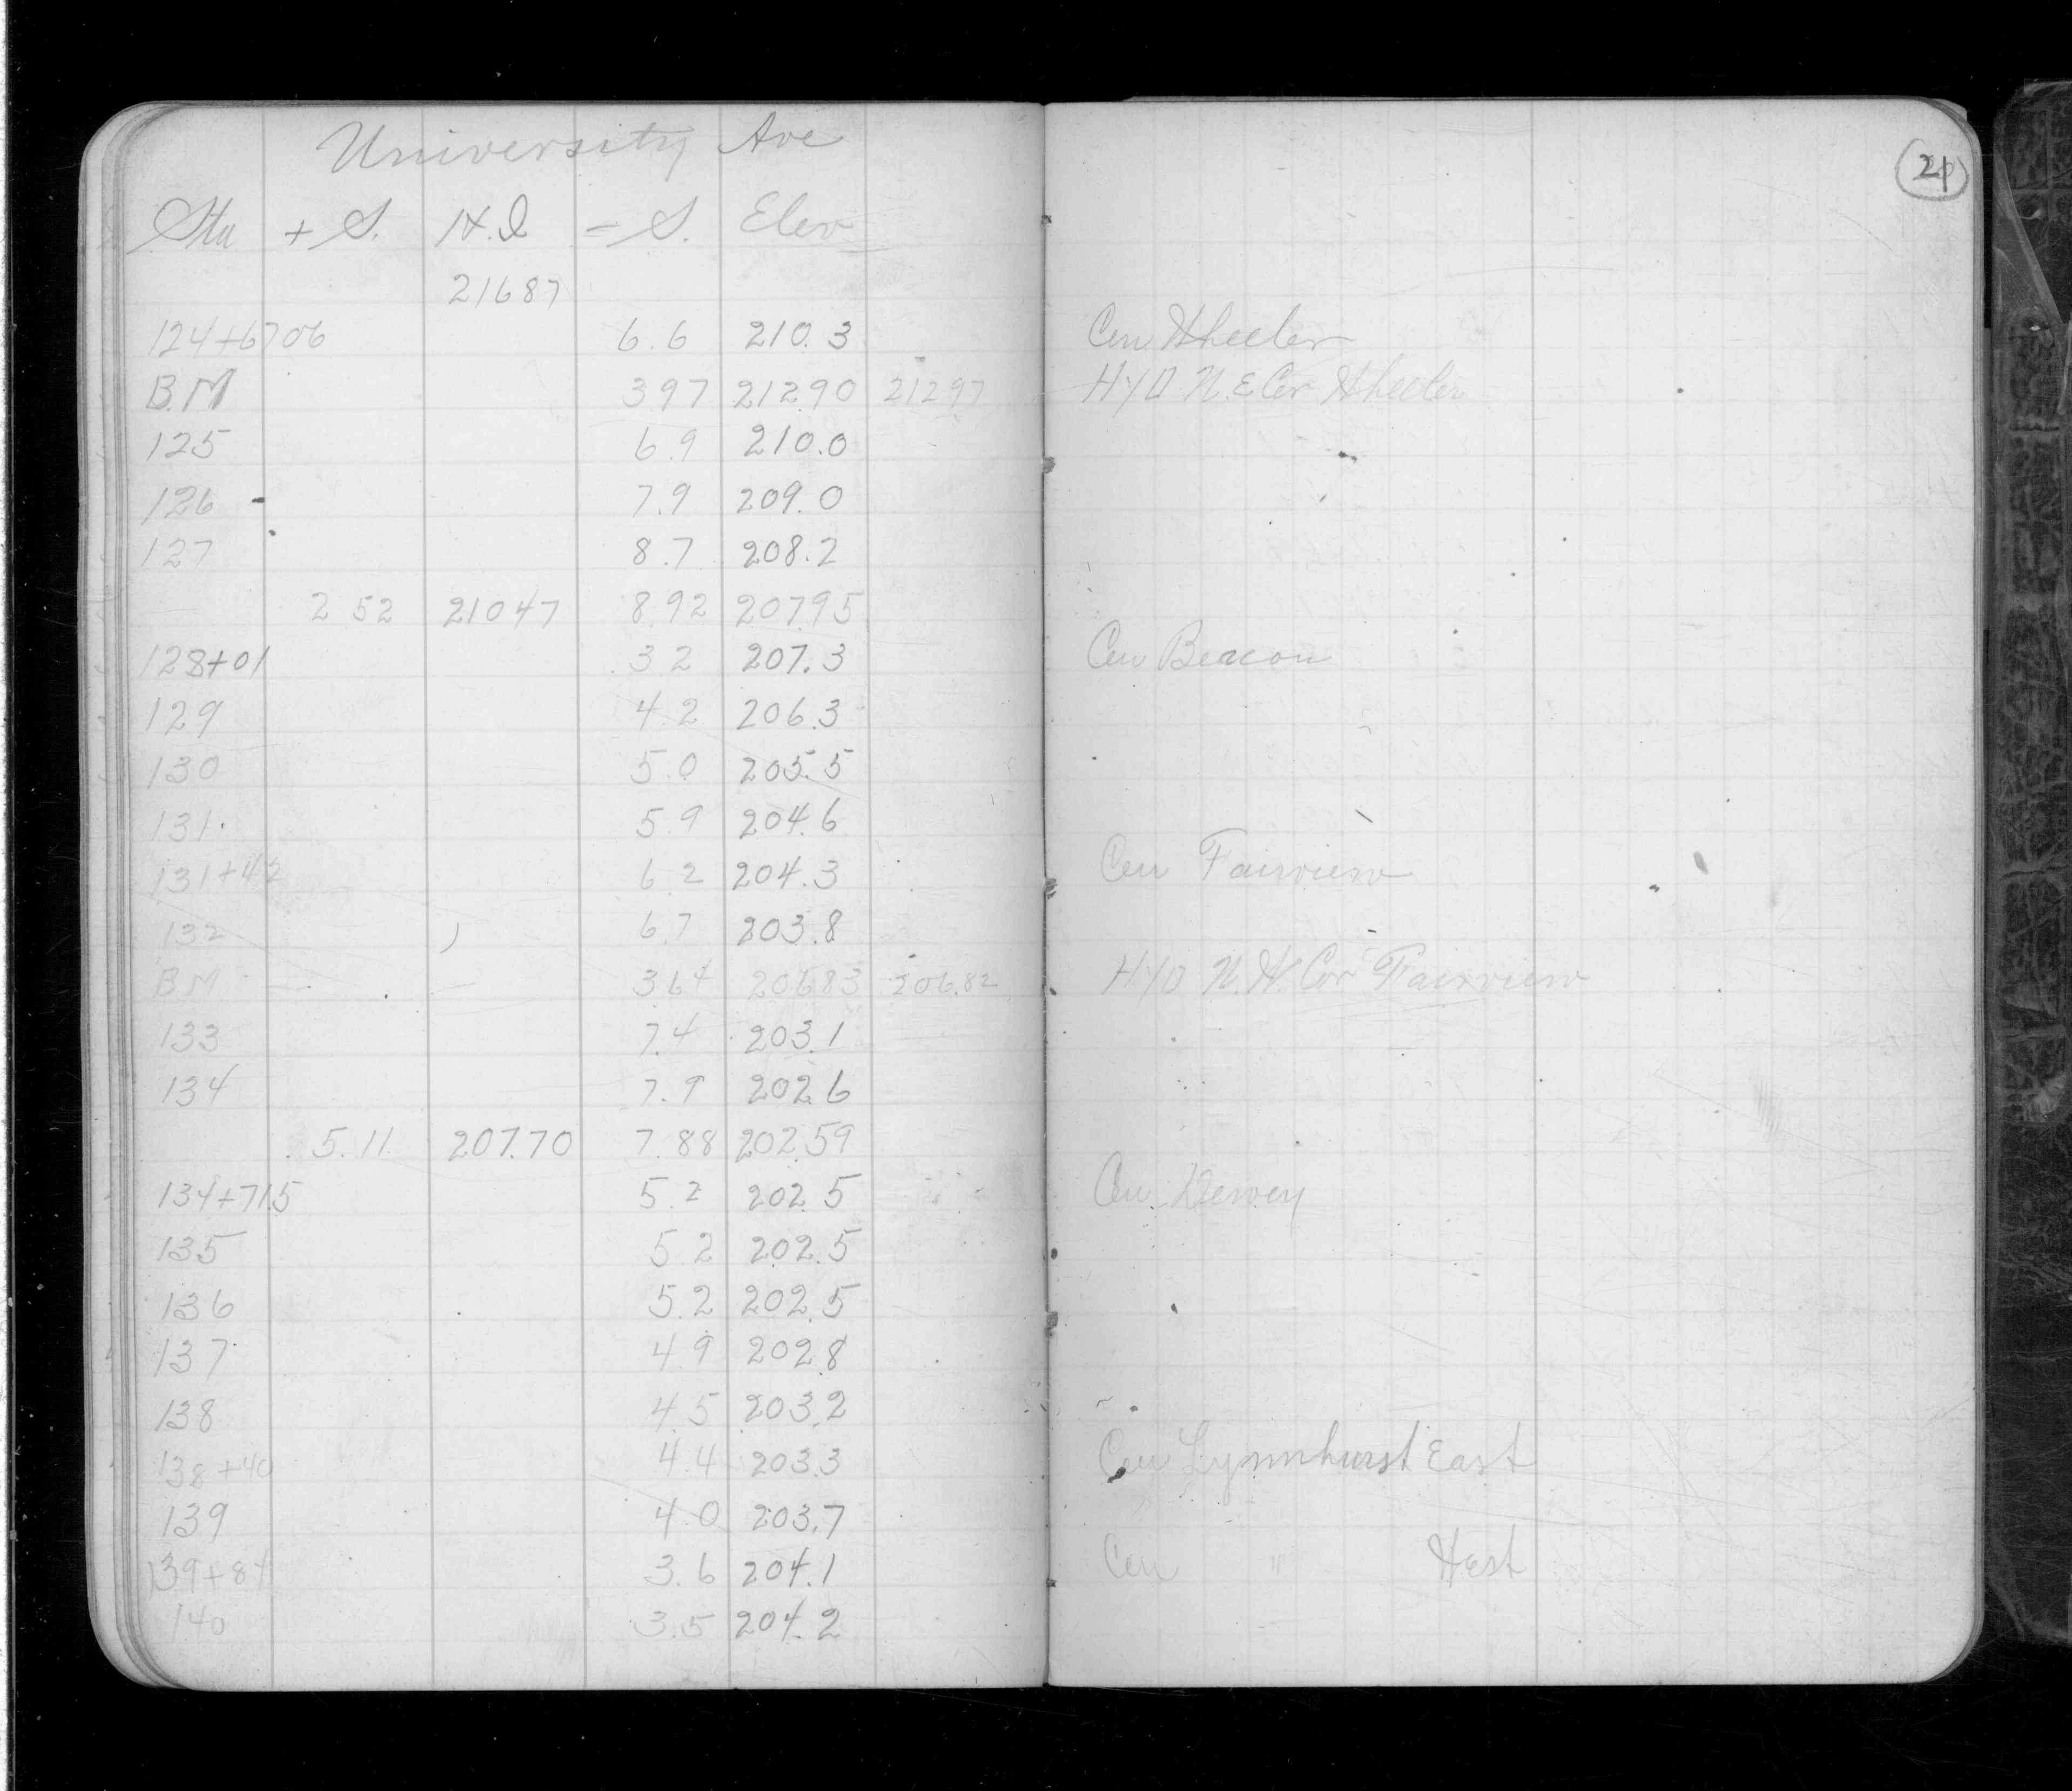 University Ave
21
Sta + S. H.I - S. Elev
21687
124+6706 6.6 210.3 Cen Wheeler
B.M 397 21290 21297 HYD N.E Cor Wheeler
125 6.9 210.0
126 7.9 209.0
127 8.7 208.2
2 52 21047 8.92 20795
128+01 3 2 207.3 Cen Beacon
129 4 2 206.3
130 5.0 205.5
131 5 9 204.6
131+42 6 2 204.3 Cen Fairview
132 6.7 203.8
B M 364 20683 206.82 HYD N.W. Cor Fairview
133 7.4 203.1
134 7.9 202.6
5.11 207.70 7.88 202.59
134+71.5 5.2 202.5 Cen Dewey
135 5.2 202.5
136 5.2 202.5
137 4.9 202.8
138 4.5 203.2
138+40 4.4 203.3 Cen Lynnhurst East
139 4.0 203.7
139+84 3.6 204.1 Cen " West
140 3.5 204.2